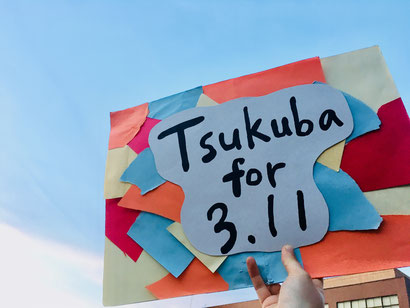 Tsukuba
for
3.11